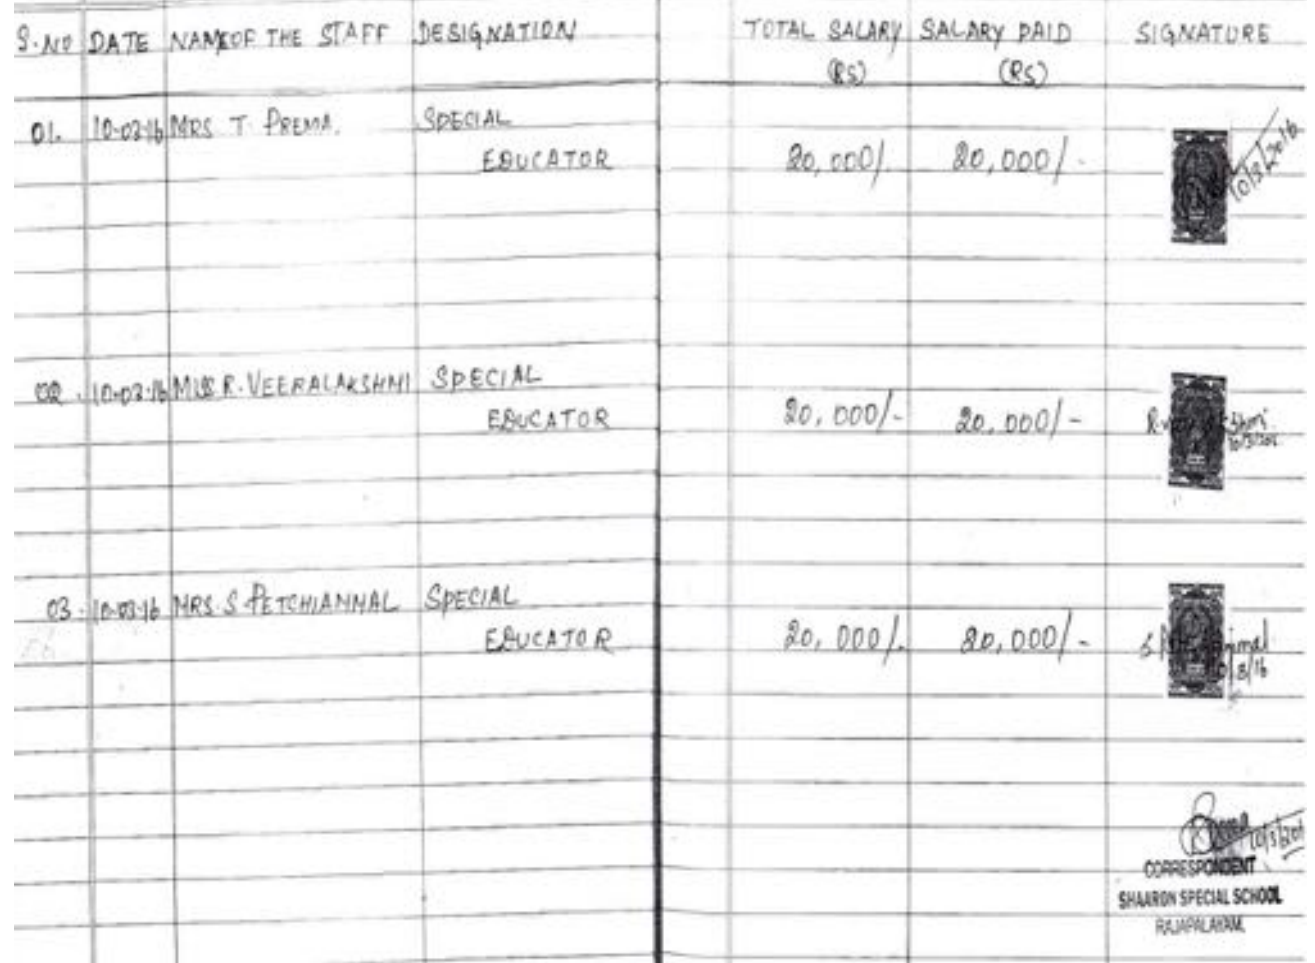 S.NO DATE NAME OF THE STAFF DESIGNATION TOTAL SALARY (RS) SALARY PAID (RS) SIGNATURE
01. 10-03-16 MRS T. PREMA. SPECIAL
EDUCATOR 20,000/. 20,000/- 10/3/2016
02. 10-03-16 MISS R. VEERALAKSHMI SPECIAL
EDUCATOR 20,000/- 20,000/- 10/3/201
03. 10-03-16 MRS. S PETCHIAMMAL SPECIAL
EDUCATOR 20,000/. 20,000/-
10/3/201
CORRESPONDENT
SHAARON SPECIAL SCHOOL
RAJAPALAYAM.